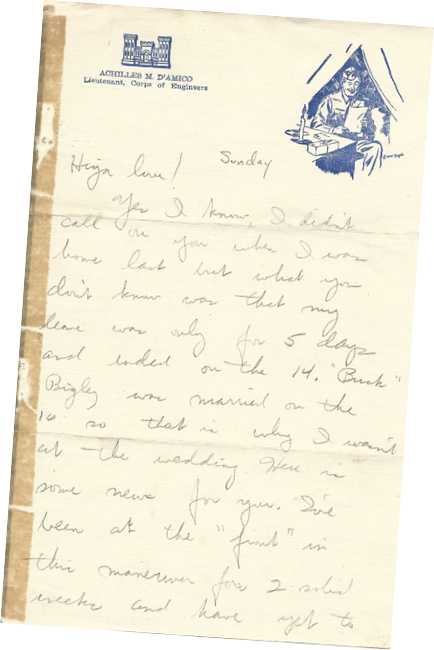 ACHILLES M. D'AMICO
Lieutenant, Corps of Engineers
Sunday
Hiya love!
Yes I know, I didn't
call on you when I was
home last but what you
don't know was that my
leave was only for 5 days
and ended on the 14. "Buck"
Bigley was married on the
16 so that is why I wasn't
at the wedding. Here is
some news for you. I've
been at the "front" in
this maneuver for 2 solid
weeks and have yet to